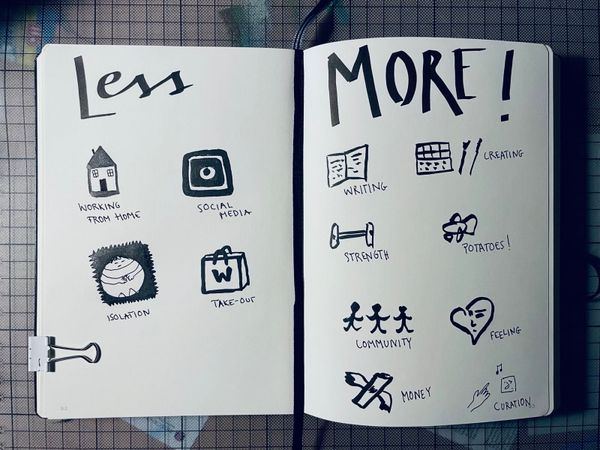 Less
WORKING
FROM HOME
SOCIAL
MEDIA
ISOLATION
W
TAKE-OUT
MORE!
WRITING
CREATING
STRENGTH
POTATOES!
COMMUNITY
FEELING
MONEY
CURATION